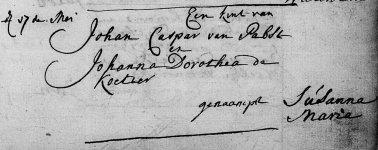 17 de Mei Een kint van
Johan Caspar van Pabst
en
Johanna Dorothea de
Koetser
genaampt Susanna
Maria